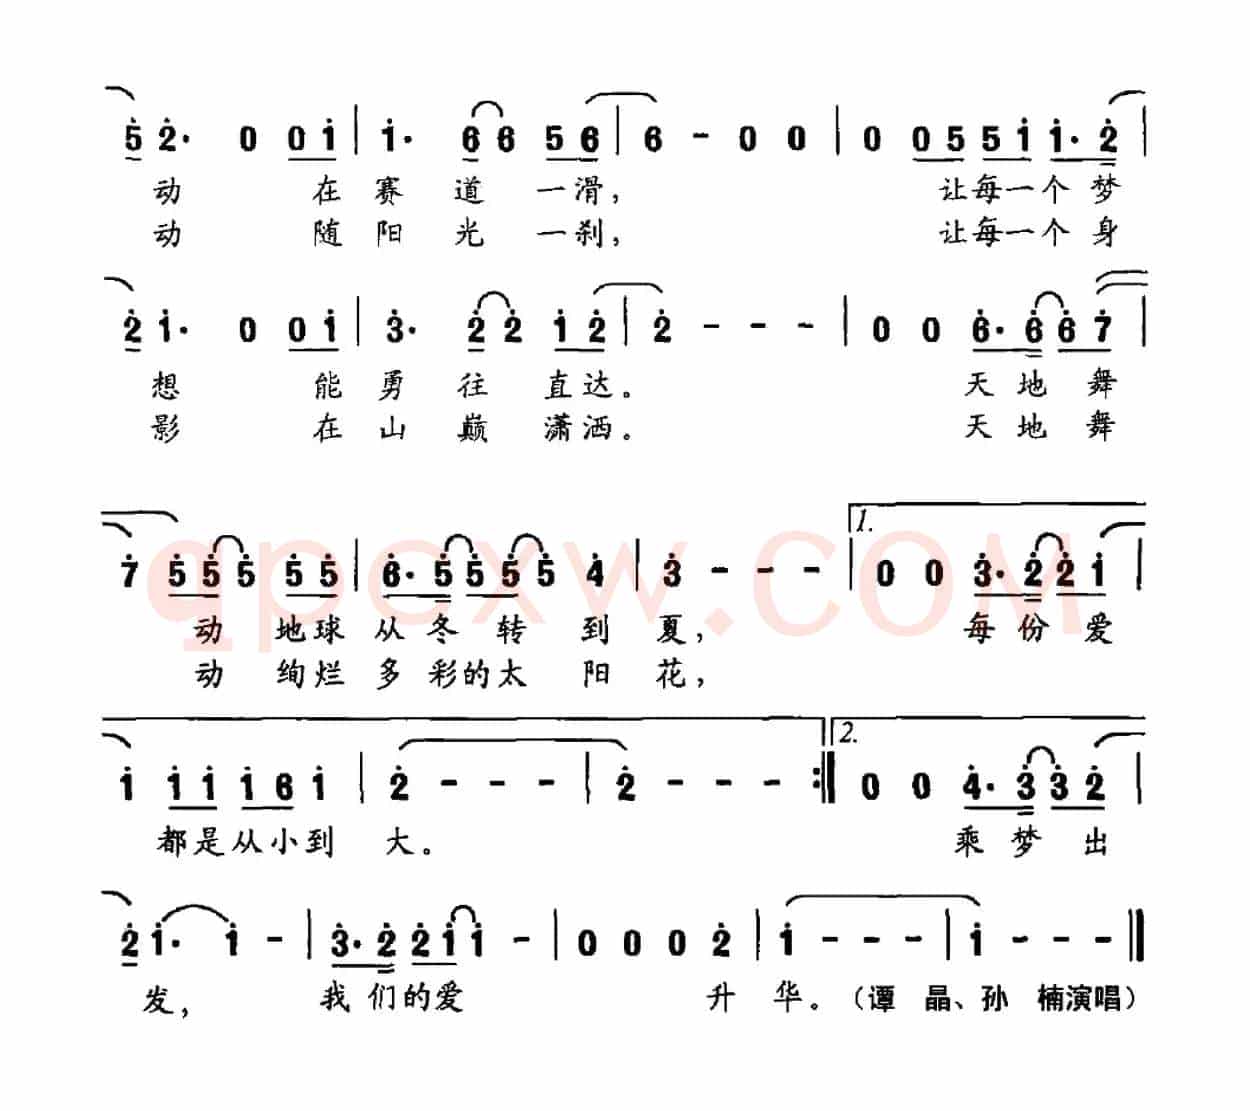 5 2· 0 0 1 | 1· 6 6 5 6 | 6 - 0 0 | 0 0 5 5 1 1· 2 |
动 在 赛 道 一 滑， 让 每 一 个 梦
动 随 阳 光 一 刹， 让 每 一 个 身
2 1· 0 0 1 | 3· 2 2 1 2 | 2 - - - | 0 0 6· 6 6 7 |
想 能 勇 往 直 达。 天 地 舞
影 在 山 巅 潇 洒。 天 地 舞
1.
7 5 5 5 5 5 | 6· 5 5 5 5 4 | 3 - - - | 0 0 3· 2 2 1 |
动 地 球 从 冬 转 到 夏， 每 份 爱
动 绚 烂 多 彩 的 太 阳 花，
qpcxw.COM
2.
1 1 1 1 6 1 | 2 - - - | 2 - - - :‖ 0 0 4· 3 3 2 |
都 是 从 小 到 大。 乘 梦 出
2 1· 1 - | 3· 2 2 1 1 - | 0 0 0 2 | 1 - - - | 1 - - - ‖
发， 我 们 的 爱 升 华。（谭 晶、孙 楠演唱）